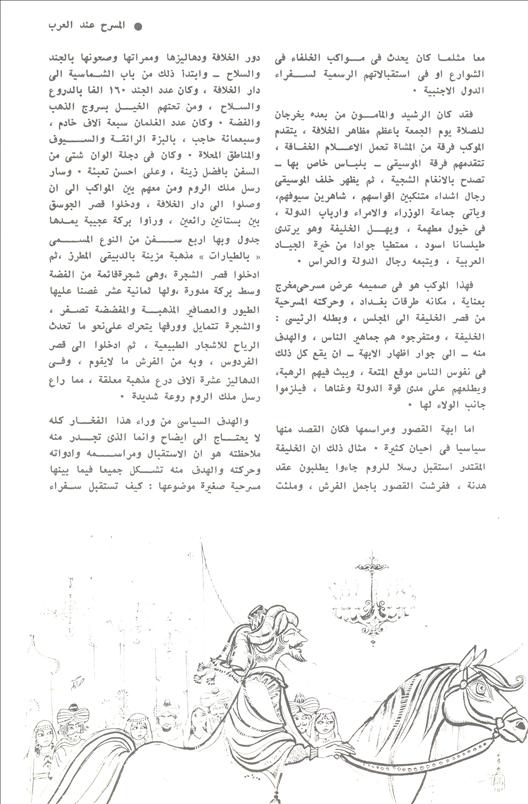 ● المسرح عند العرب
معا مثلما كان يحدث فى مواكب الخلفاء فى
الشوارع او فى استقبالاتهم الرسمية لسفراء
الدول الاجنبية ٠
فقد كان الرشيد والمامون من بعده يخرجان
للصلاة يوم الجمعة باعظم مظاهر الخلافة ، يتقدم
الموكب فرقة من المشاة تحمل الاعلام الخفاقة ،
تتقدمهم فرقة الموسيقى ــ بلباس خاص بها ــ
تصدح بالانغام الشجية ، ثم يظهر خلف الموسيقى
رجال اشداء متنكبين اقواسهم ، شاهرين سيوفهم،
وياتى جماعة الوزراء والامراء وارباب الدولة ،
فى خيول مطهمة ، ويهل الخليفة وهو يرتدى
طيلسانا اسود ، ممتطيا جوادا من خيرة الجياد
العربية ، ويتبعه رجال الدولة والحراس ٠
فهذا الموكب هو فى صميمه عرض مسرحى مخرج
بعناية ، مكانه طرقات بغداد ، وحركته المسرحية
من قصر الخليفة الى المجلس ، وبطله الرئيسى :
الخليفة ، ومتفرجوه هم جماهير الناس ، والهدف
منه ــ الى جوار اظهار الابهة ــ ان يقع كل ذلك
فى نفوس الناس موقع المتعة ، ويبث فيهم الرهبة،
ويطلعهم على مدى قوة الدولة وغناها ، فيلزموا
جانب الولاء لها ٠
اما ابهة القصور ومراسمها فكان القصد منها
سياسيا فى احيان كثيرة ٠ مثال ذلك ان الخليفة
المقتدر استقبل رسلا للروم جاءوا يطلبون عقد
هدنة ، ففرشت القصور باجمل الفرش ، وملئت
دور الخلافة ودهاليزها وممراتها وصحونها بالجند
والسلاح ــ وابتدأ ذلك من باب الشماسية الى
دار الخلافة ، وكان عدد الجند ١٦٠ الفا بالدروع
والسلاح ، ومن تحتهم الخيل بسروج الذهب
والفضة ٠ وكان عدد الغلمان سبعة آلاف خادم ،
وسبعمائة حاجب ، بالبزة الرائقة والسيوف
والمناطق المحلاة ٠ وكان فى دجلة الوان شتى من
السفن بافضل زينة ، وعلى احسن تعبئة ٠ وسار
رسل ملك الروم ومن معهم بين المواكب الى ان
وصلوا الى دار الخلافة ، ودخلوا قصر الجوسق
بين بستانين رائعين ، ورأوا بركة عجيبة يمدها
جدول وبها اربع سفن من النوع المسمى
« بالطيارات » مذهبة مزينة بالدبيقى المطرز ،ثم
ادخلوا قصر الشجرة ،وهى شجرةقائمة من الفضة
وسط بركة مدورة ،ولها ثمانية عشر غصنا عليها
الطيور والعصافير المذهبة والمفضضة تصفر ،
والشجرة تتمايل وورقها يتحرك على نحو ما تحدث
الرياح للاشجار الطبيعية ، ثم ادخلوا الى قصر
الفردوس ، وبه من الفرش ما لايقوم ، وفى
الدهاليز عشرة آلاف درع مذهبة معلقة ، مما راع
رسل ملك الروم روعة شديدة ٠
والهدف السياسى من وراء هذا الفخار كله
لا يحتاج الى ايضاح وانما الذى تجدر منه
ملاحظته هو ان الاستقبال ومراسمه وادواته
وحركته والهدف منه تشكل جميعا فيما بينها
مسرحية صغيرة موضوعها : كيف تستقبل سفراء